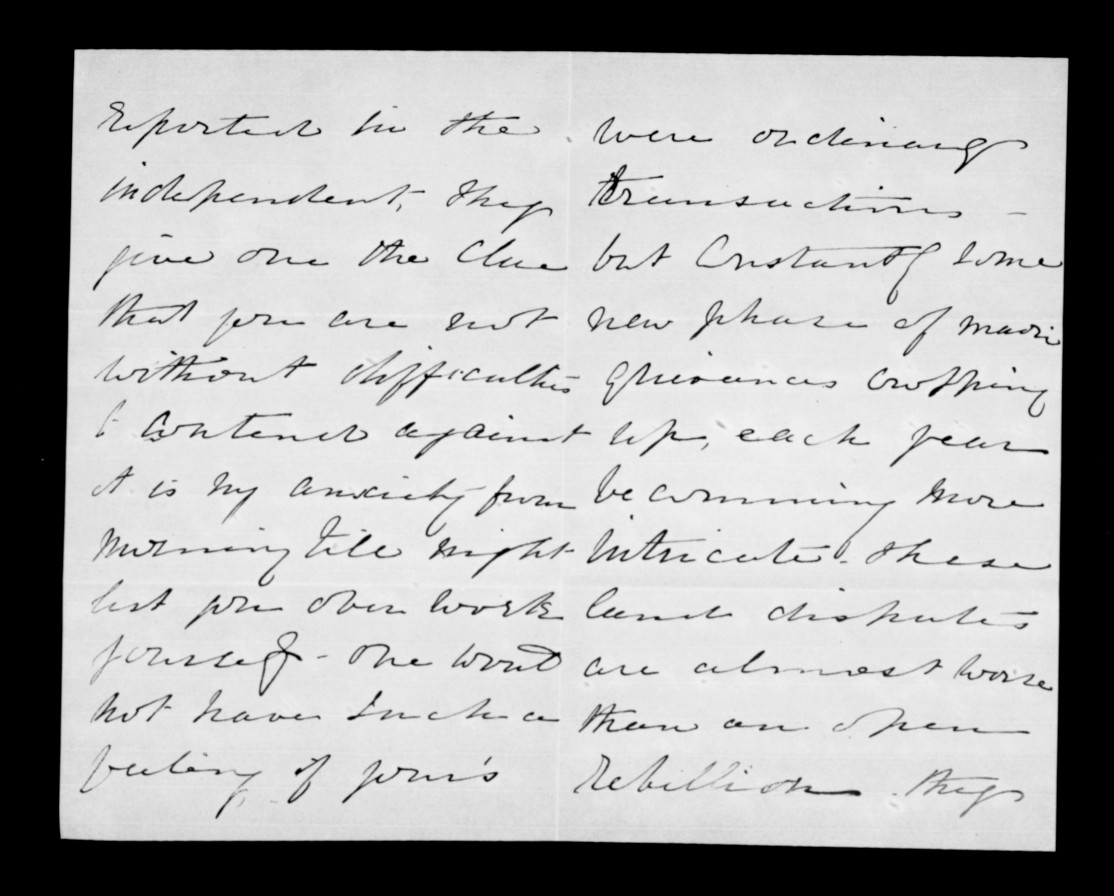 reported in the
independent, they
give one the clue
that you are not
without difficulties
to contend against
it is my anxiety from
morning till night
lest you over work
yourself - one would
not have such a
feeling if your's
were ordinary
transactions -
but constantly some
new phase of maori
grievances cropping
up, each year
becomming more
intricate. these
land disputes
are almost worse
than an open
rebellion - they